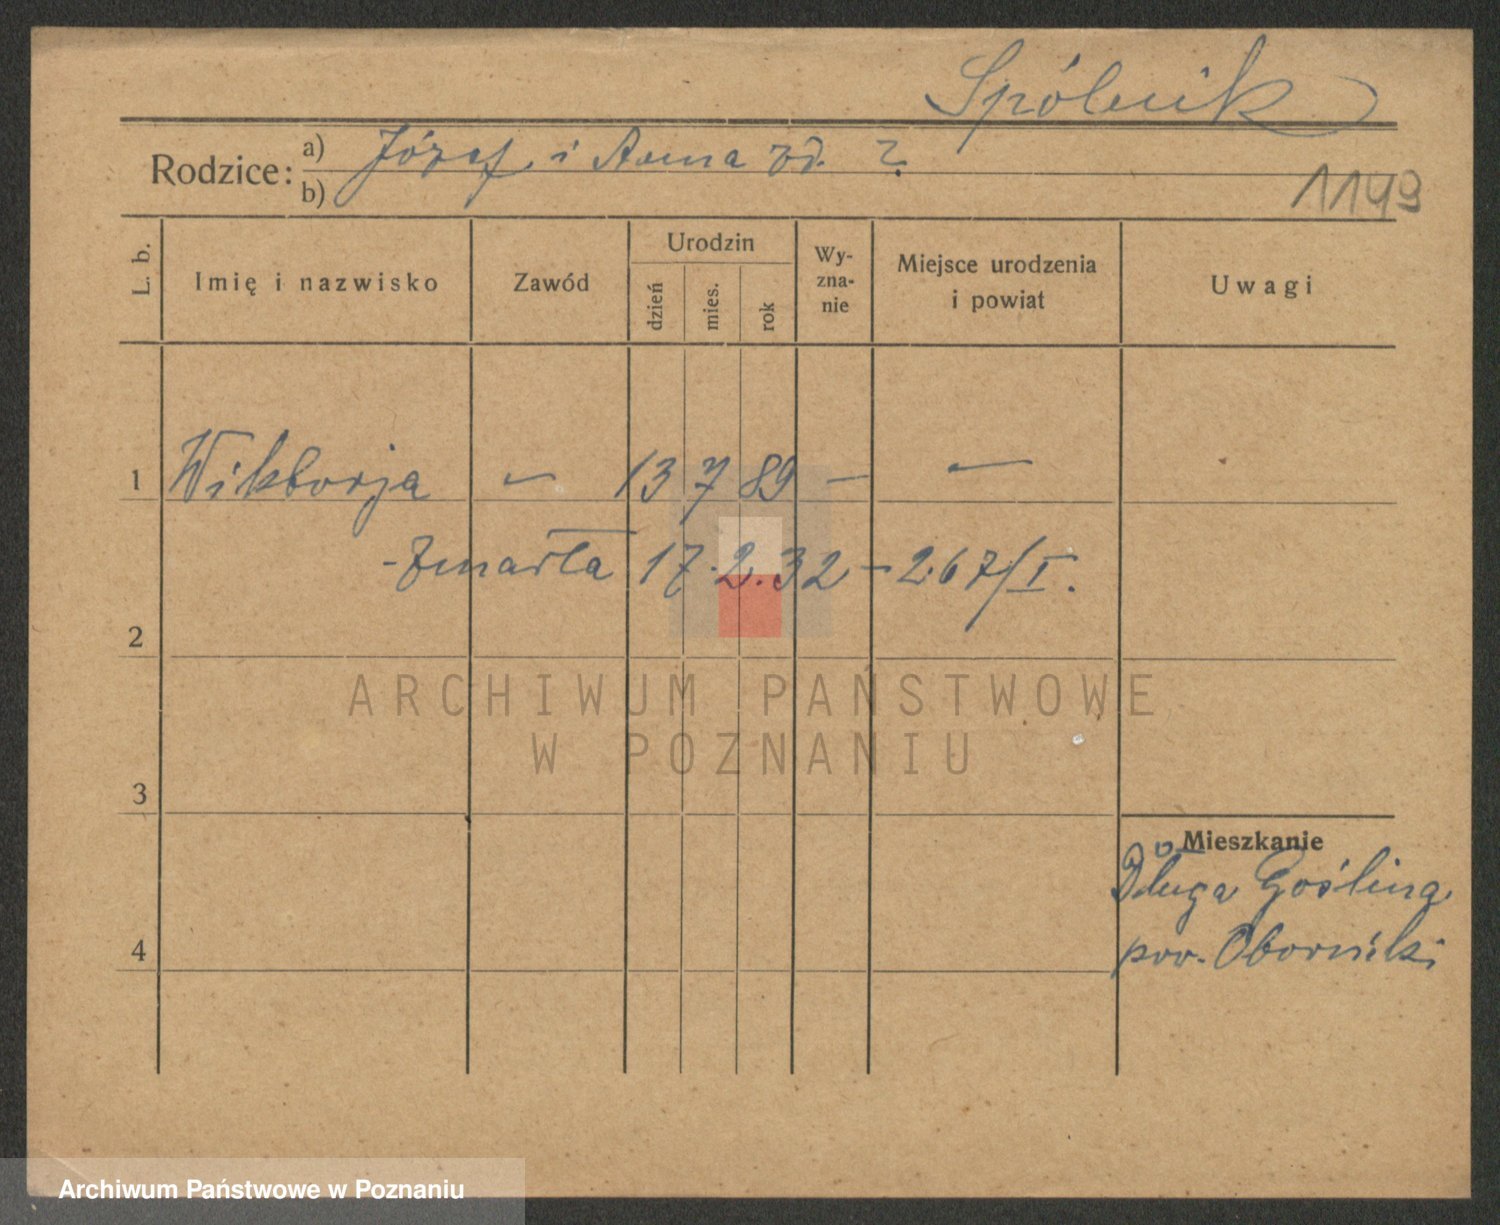 Spólnik
Rodzice: a) Józef i Anna zd. ?
b)
1149
L. b.
Imię i nazwisko
Zawód
Urodzin
dzień
mies.
rok
Wy-
zna-
nie
Miejsce urodzenia
i powiat
Uwagi
1 Wiktorja — 13 7 89 — —
- Zmarła 17.2.32 – 267/I.
2
ARCHIWUM PAŃSTWOWE
W POZNANIU
3
Mieszkanie
Długa Goślina
pow. Oborniki
4
Archiwum Państwowe w Poznaniu